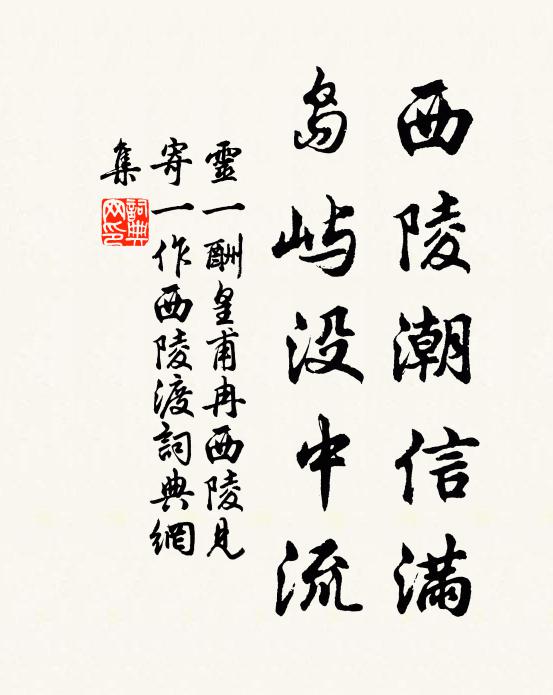 西陵潮信满
岛屿没中流
靈一酬皇甫冉西陵見
寄一作西陵渡詞典網
集
詞典
网印